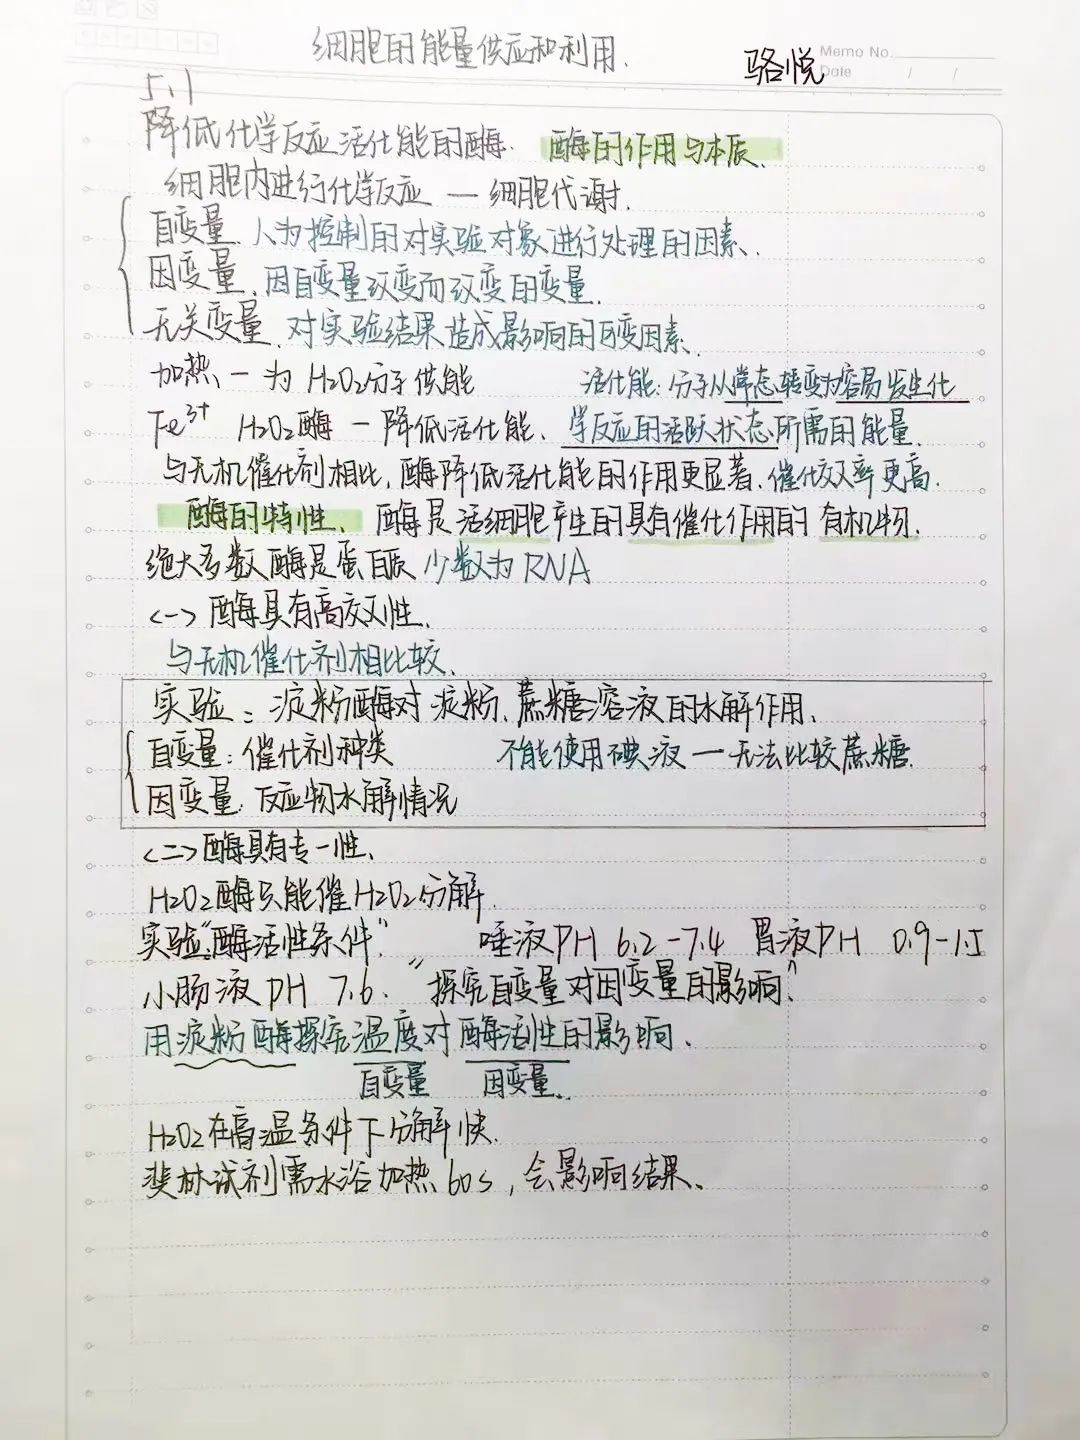 细胞的能量供应和利用.
骆悦
Memo No.
Date / /
5.1
降低化学反应活化能的酶. 酶的作用与本质.
细胞内进行化学反应 — 细胞代谢.
自变量. 人为控制的对实验对象进行处理的因素.
因变量. 因自变量改变而改变的变量.
无关变量. 对实验结果造成影响的可变因素.
加热 — 为 H2O2分子供能 活化能: 分子从常态转变为容易发生化
Fe3+ H2O2酶 — 降低活化能. 学反应的活跃状态所需的能量.
与无机催化剂相比, 酶降低活化能的作用更显著. 催化效率更高.
酶的特性. 酶是活细胞产生的具有催化作用的有机物.
绝大多数酶是蛋白质 少数为RNA
<一> 酶具有高效性.
与无机催化剂相比较.
实验: 淀粉酶对淀粉.蔗糖溶液的水解作用.
自变量: 催化剂种类 不能使用碘液 — 无法比较蔗糖.
因变量: 反应物水解情况
<二> 酶具有专一性.
H2O2酶只能催H2O2分解.
实验:"酶活性条件" 唾液PH 6.2-7.4 胃液PH 0.9-1.5
小肠液PH 7.6. "探究自变量对因变量的影响"
用淀粉酶探究温度对酶活性的影响.
自变量 因变量.
H2O2在高温条件下分解快.
斐林试剂需水浴加热60s, 会影响结果.